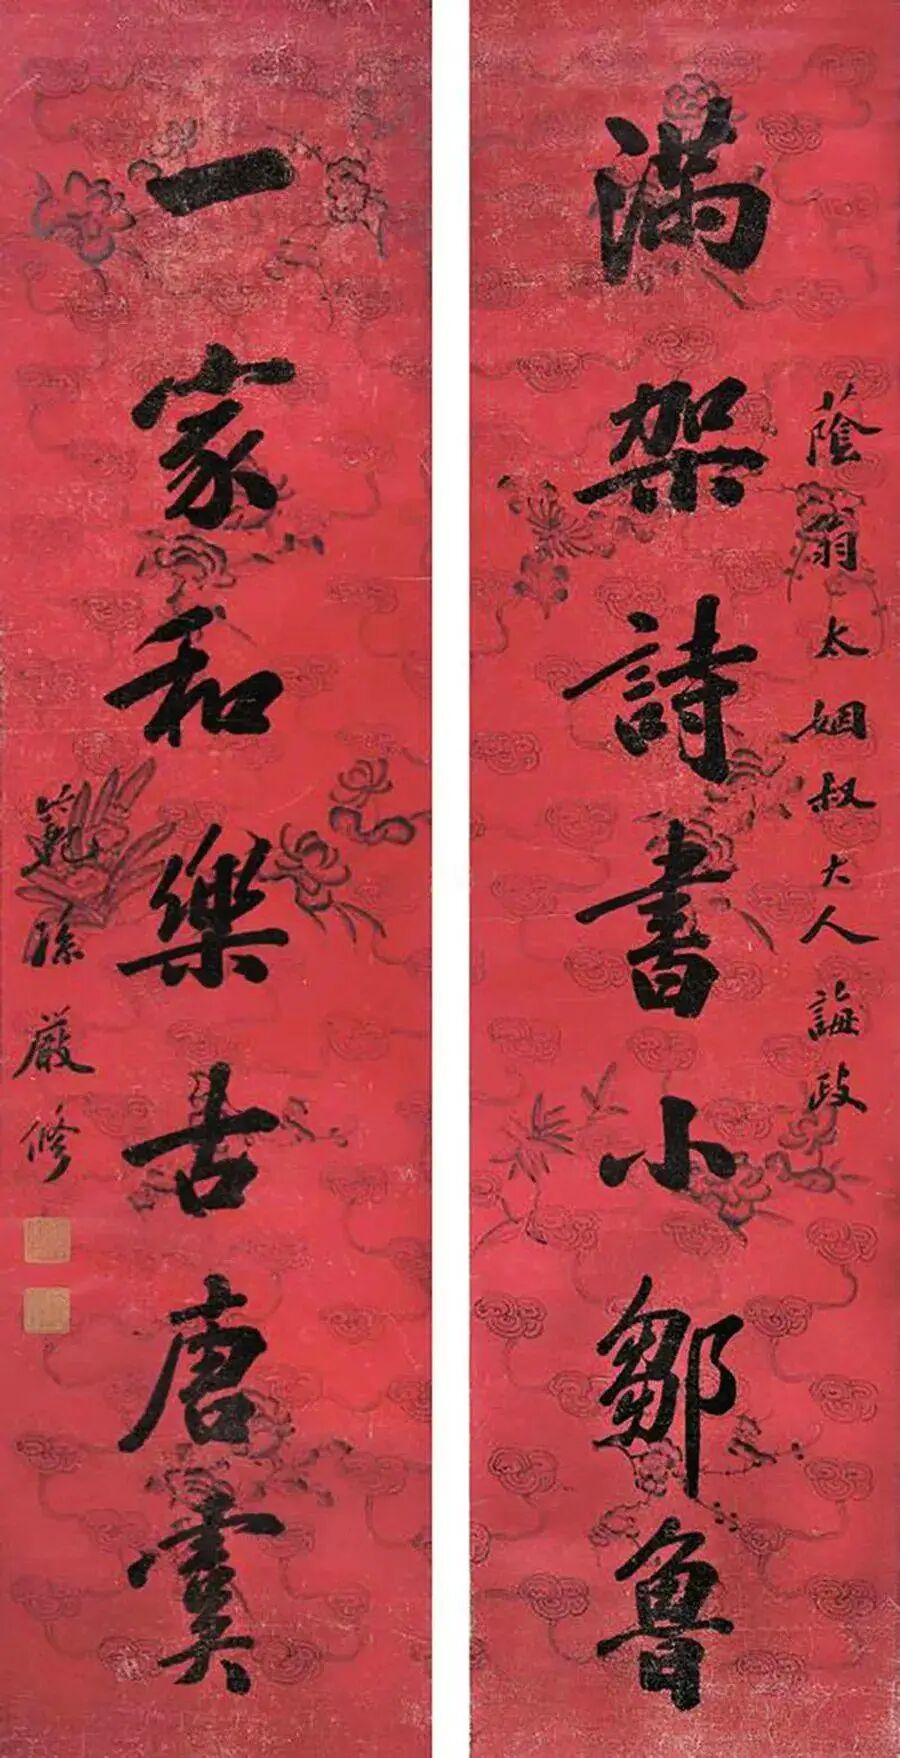 蔭翁太姻叔大人誨政
満架詩書小鄒魯
一家和樂古唐虞
範孫嚴修